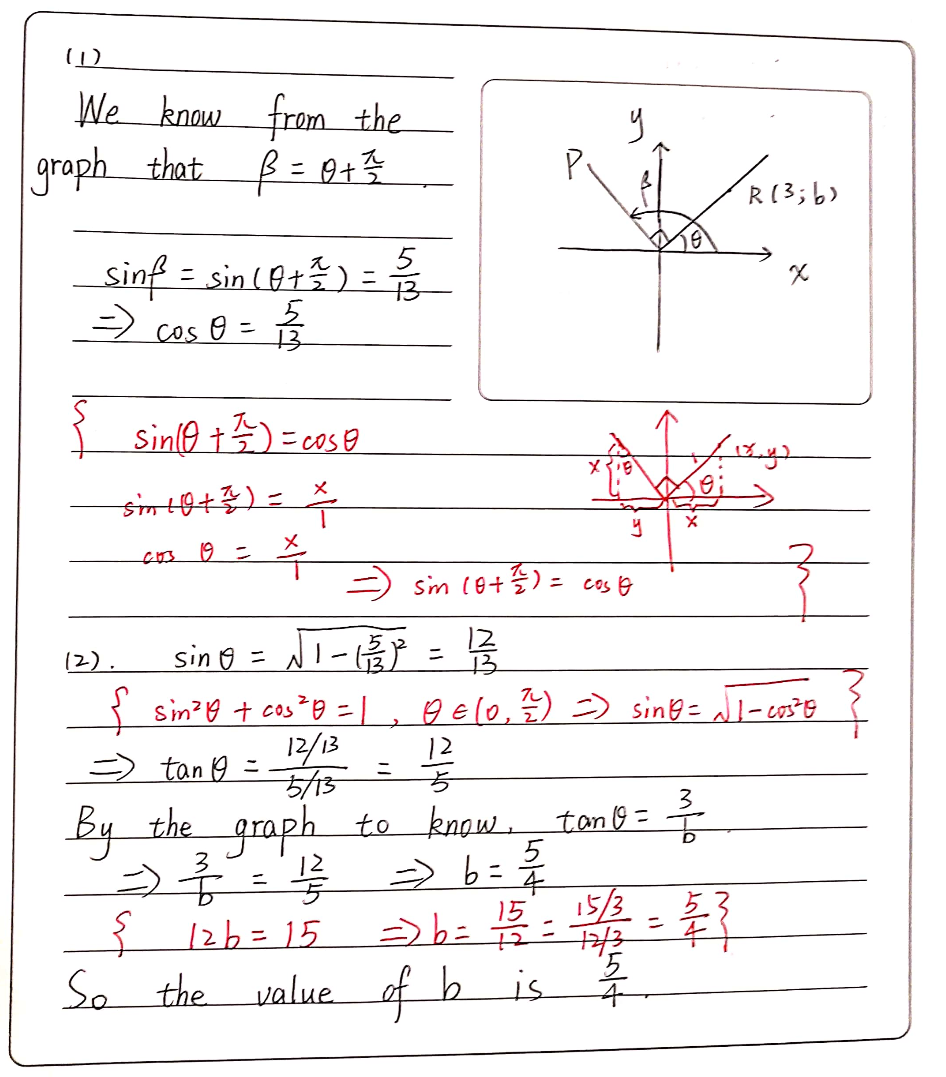 (1)
We know from the
graph that β = θ + π/2.
sinβ = sin(θ+π/2) = 5/13
⇒ cos θ = 5/13
y
P
β
R(3;b)
θ
x
{ sin(θ + π/2) = cosθ
(x,y)
x { θ
θ
y x
sin(θ+π/2) = x/1
cos θ = x/1
⇒ sin (θ+π/2) = cosθ }
(2). sinθ = √(1-(5/13)²) = 12/13
{ sin²θ + cos²θ = 1, θ∈(0, π/2) ⇒ sinθ = √(1-cos²θ) }
⇒ tanθ = (12/13)/(5/13) = 12/5
By the graph to know, tanθ = 3/b.
⇒ 3/b = 12/5 ⇒ b = 5/4
{ 12b = 15 ⇒ b = 15/12 = (15/3)/(12/3) = 5/4 }
So the value of b is 5/4.